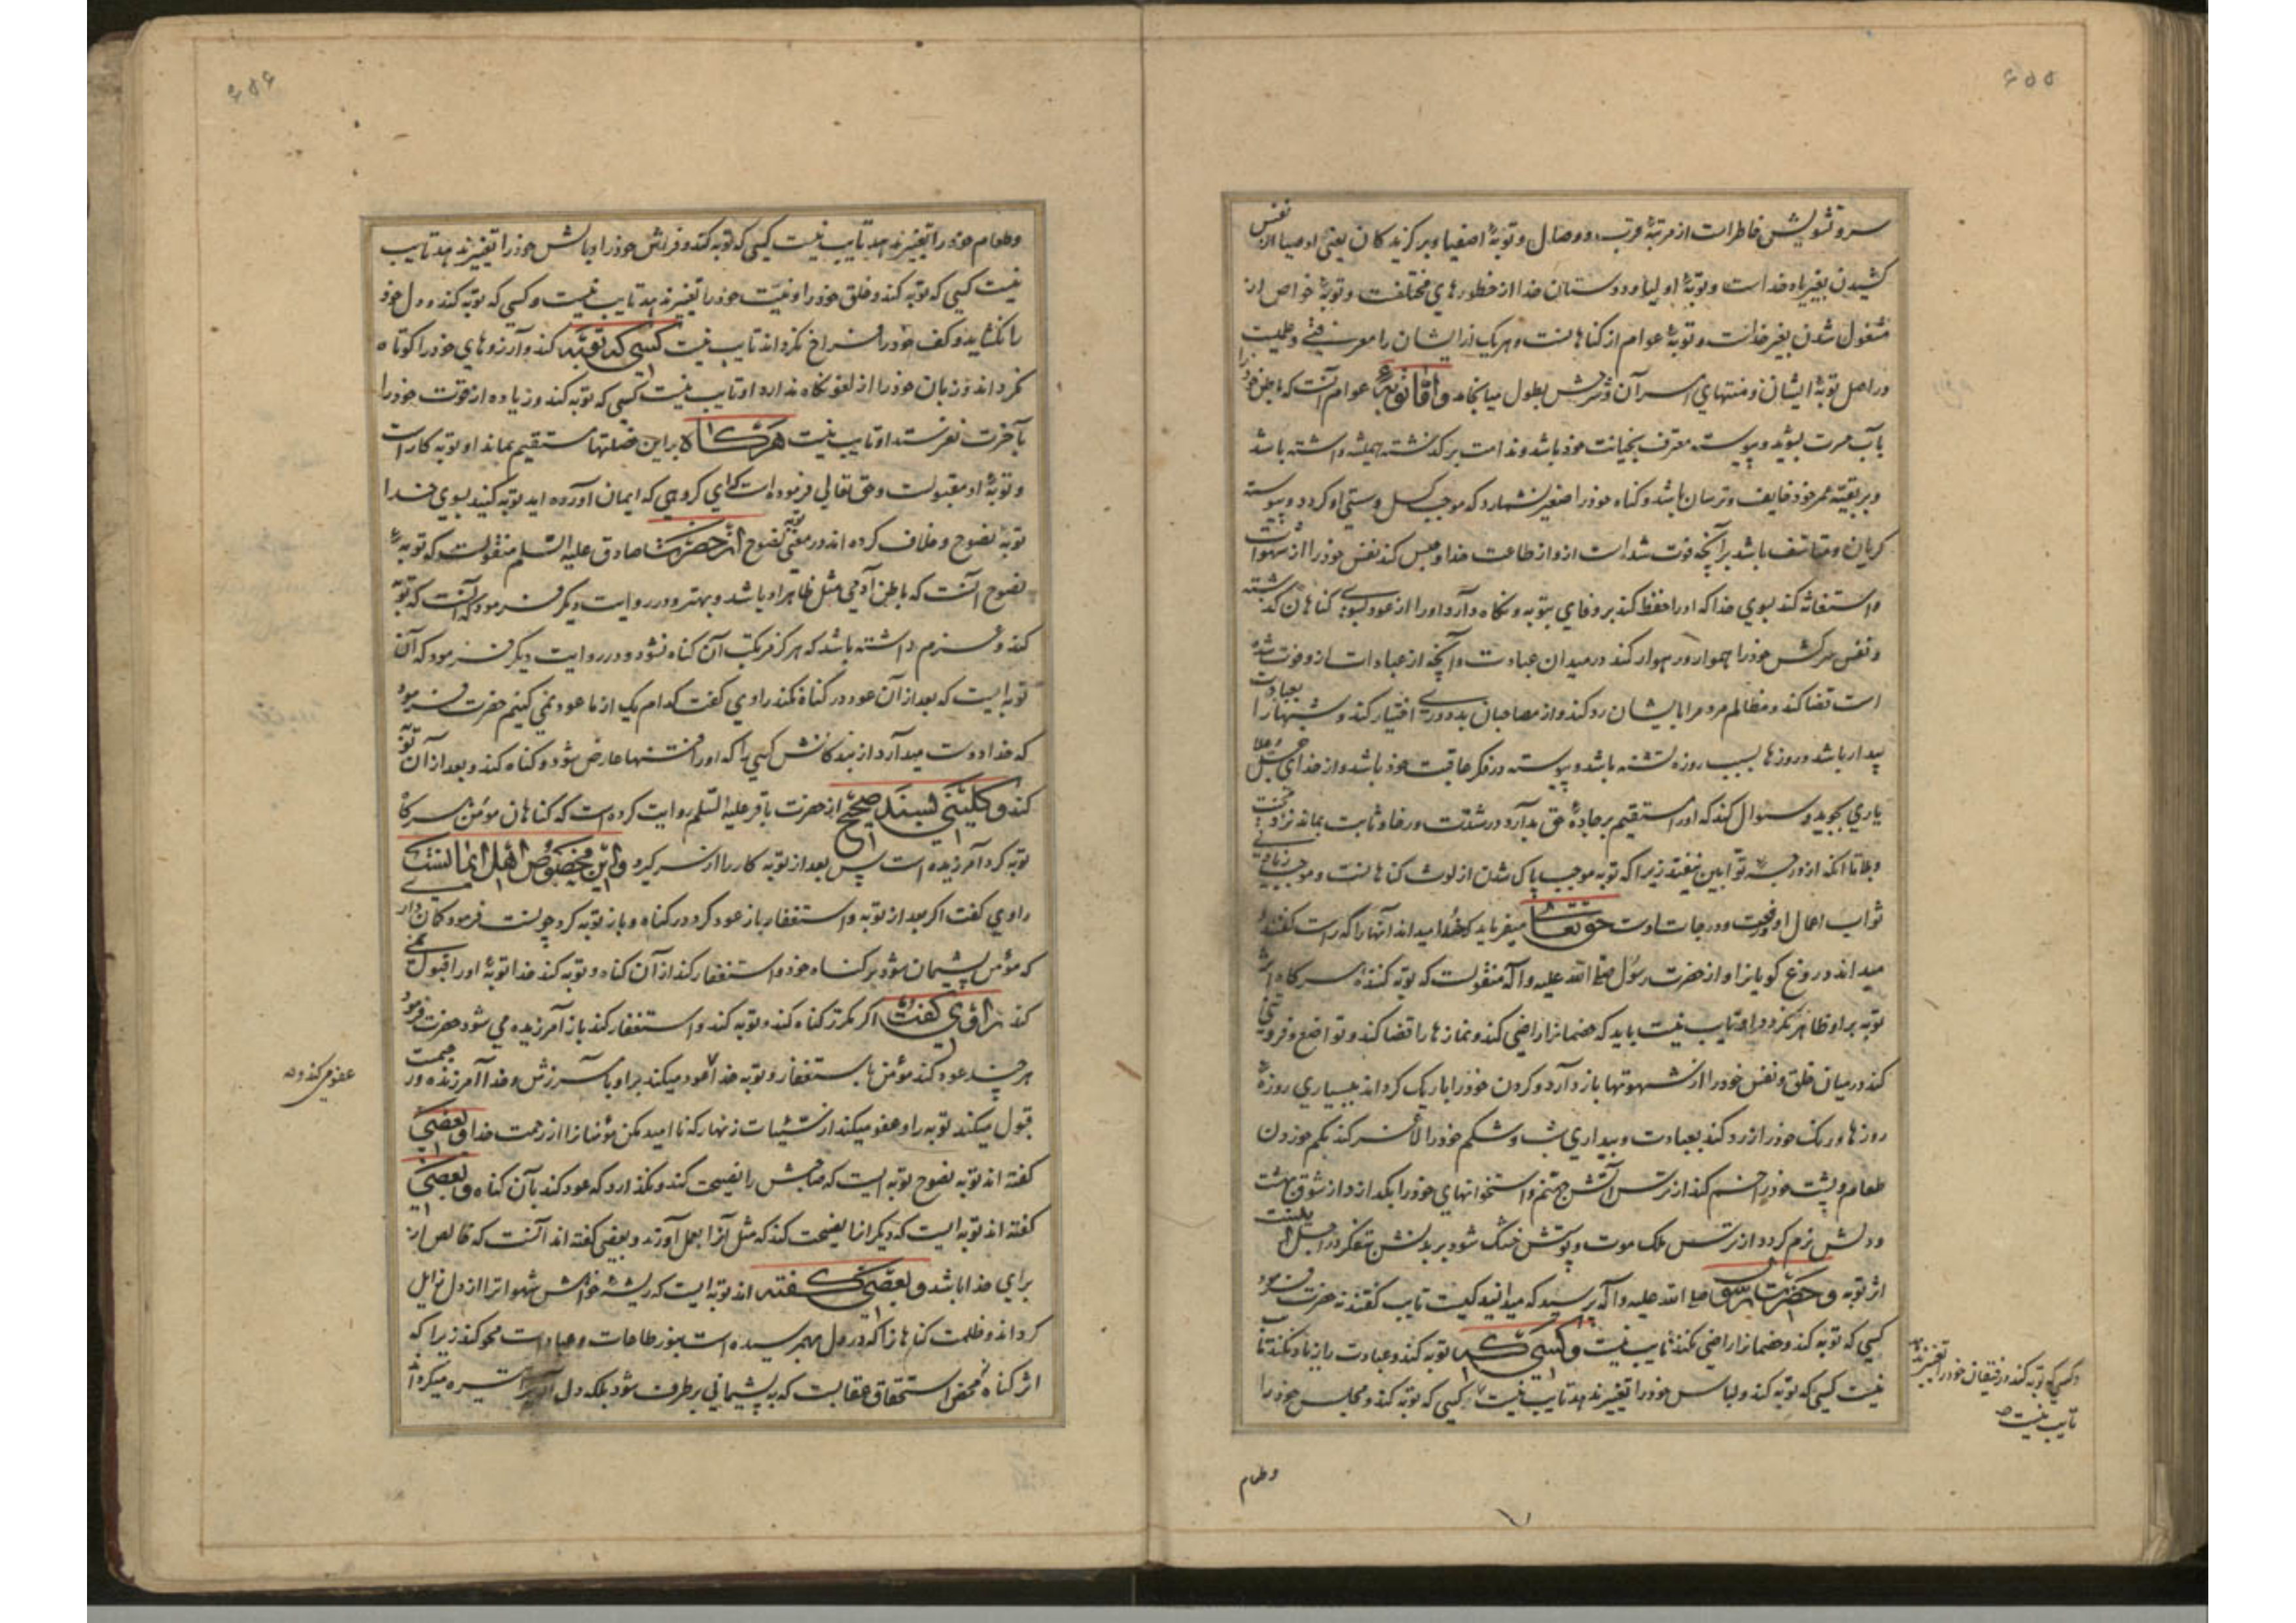 ۶۵۵
سر و تشویش خاطرات از مرتبهٔ قرب و وصال و توبهٔ اصفیا و برگزیدگان یعنی اوصیا از نفس
کشیدن بغیر یاد خداست و توبهٔ اولیا و دوستان خدا از خطورهای مختلفت و توبهٔ خواص از
مشغول شدن بغیر خداست و توبهٔ عوام از گناهانست و هر یک از ایشان را معرفتی و علمیست
در اصل توبهٔ ایشان و منتهای امر آن و شرحش بطول میانجامد و اما توبهٔ عوام آنست که باطن خود را
بآب حسرت بشوید و پیوسته معترف بخیانت خود باشد و ندامت بر گذشته همیشه داشته باشد
و بر بقیهٔ عمر خود خایف و ترسان باشد و گناه خود را صغیر نشمارد که موجب کسل و سستی او گردد و پیوسته
گریان و متاسف باشد بر آنچه فوت شده است ازو از طاعت خدا و حبس کند نفس خود را از شهوات
و استغاثه کند بسوی خدا که او را حفظ کند بر وفای بتوبه و نگاه دارد او را از عود بسوی گناهان گذشته
و نفس سرکش خود را هموار و رهوار کند در میدان عبادت و آنچه از عبادات ازو فوت شده
است قضا کند و مظالم مردم را بایشان رد کند و از مصاحبان بد دوری اختیار کند و شبها را بعبادت
بیدار باشد و روزها بسبب روزه تشنه باشد و پیوسته در فکر عاقبت خود باشد و از خدای جل و علا
یاری بجوید و سئوال کند که او را مستقیم بر جادهٔ حق بدارد و در شدت و رخا و ثابت بماند نزد محنت
و بلا تا آنکه از درجهٔ توابین نیفتد زیرا که توبه موجب پاک شدن از لوث گناهانست و موجب زیادتی
ثواب اعمال او و رفعت درجات اوست حق تعالی میفرماید که خدا میداند آنها را که راست گفتند و
میداند دروغ گویانرا و از حضرت رسول صلی الله علیه و آله منقولست که توبه کننده هرگاه اثر
توبه بر او ظاهر نگردد او تایب نیست باید که خصمانرا راضی کند و نمازها را قضا کند و تواضع و فروتنی
کند در میان خلق و نفس خود را از شهوتها باز دارد و گردن خود را باریک گرداند ببسیاری روزهٔ
روزها و رنگ خود را زرد کند بعبادت و بیداری شب و شکم خود را لاغر کند بکم خوردن
طعام و پشت خود را خم کند از ترس آتش جهنم و استخوانهای خود را بگدازد از شوق بهشت
و دلش نرم گردد از ترس ملک موت و پوستش خشک شود بر بدنش بتفکر در اجل اینست
اثر توبه و حضرت رسول صلی الله علیه و آله پرسید که میدانید کیست تایب گفتند نه حضرت فرمود
کسی که توبه کند و خصمانرا راضی نکند تایب نیست و کسی که توبه کند و عبادت را زیاد نکند تایب
نیست کسی که توبه کند و لباس خود را تغییر ندهد تایب نیست کسی که توبه کند و مجلس خود را
و کسی که توبه کند و رفیقان خود را تغییر ندهد
تایب نیست
و طعام
۶۵۶
و طعام خود را تغییر ندهد تایب نیست کسی که توبه کند و فراش خود را و بالش خود را تغییر ندهد تایب
نیست کسی که توبه کند و خلق خود را و نیت خود را تغییر ندهد تایب نیست و کسی که توبه کند و دل خود
را نگشاید و کف خود را فراخ نگرداند تایب نیست کسی که توبه کند و آرزوهای خود را کوتاه
نگرداند و زبان خود را از لغو نگاه ندارد او تایب نیست کسی که توبه کند و زیاده از قوت خود را
بآخرت نفرستد او تایب نیست هرگاه بر این خصلتها مستقیم بماند او توبه کار است
و توبهٔ او مقبولست و حق تعالی فرموده است که ای گروهی که ایمان آورده اید توبه کنید بسوی خدا
توبهٔ نصوح و خلاف کرده اند در معنی توبه نصوح از حضرت صادق علیه السلم منقولست که توبهٔ
نصوح آنست که باطن آدمی مثل ظاهر او باشد و بهتر و در روایت دیگر فرمود که آنست که توبه
کند و عزم داشته باشد که هرگز مرتکب آن گناه نشود و در روایت دیگر فرمود که آن
توبه ایست که بعد از آن عود در گناه نکند راوی گفت کدام یک از ما عود نمی کنیم حضرت فرمود
که خدا دوست میدارد از بندگانش کسی را که او را فتنها عارض شود و گناه کند و بعد از آن توبه
کند و کلینی بسند صحیح از حضرت باقر علیه السلم روایت کرده است که گناهان مؤمن هرگاه
توبه کرد آمرزیده است پس بعد از توبه کار را از سر گیرد و این مخصوص اهل ایمانست
راوی گفت اگر بعد از توبه و استغفار باز عود کرد در گناه و باز توبه کرد چونست فرمود گمان داری
که مؤمن پشیمان شود بر گناه خود و استغفار کند از آن گناه و توبه کند خدا توبهٔ او را قبول نمی
کند راوی گفت اگر مکرر گناه کند و توبه کند و استغفار کند باز آمرزیده می شود حضرت فرمود
هر چند عود کند مؤمن باستغفار و توبه خدا عود میکند بر او بآمرزش و خدا آمرزنده و رحیمست
قبول میکند توبه را و عفو میکند از سیئات زنهار که ناامید مکن مؤمنانرا از رحمت خدا و بعضی
گفته اند توبه نصوح توبه ایست که صاحبش را نصیحت کند و نگذارد که عود کند بآن گناه و بعضی
گفته اند توبه ایست که دیگرانرا نصیحت کند که مثل آنرا بعمل آورند و بعضی گفته اند آنست که خالص از
برای خدا باشد و بعضی گفته اند توبه ایست که ریشهٔ خواهش شهواترا از دل زایل
گرداند و ظلمت گناهانرا که در دل بهم رسیده است بنور طاعات و عبادات محو کند زیرا که
اثر گناه محض استحقاق عقابست که به پشیمانی برطرف شود بلکه دل تیره میگردد
عفو می کند و